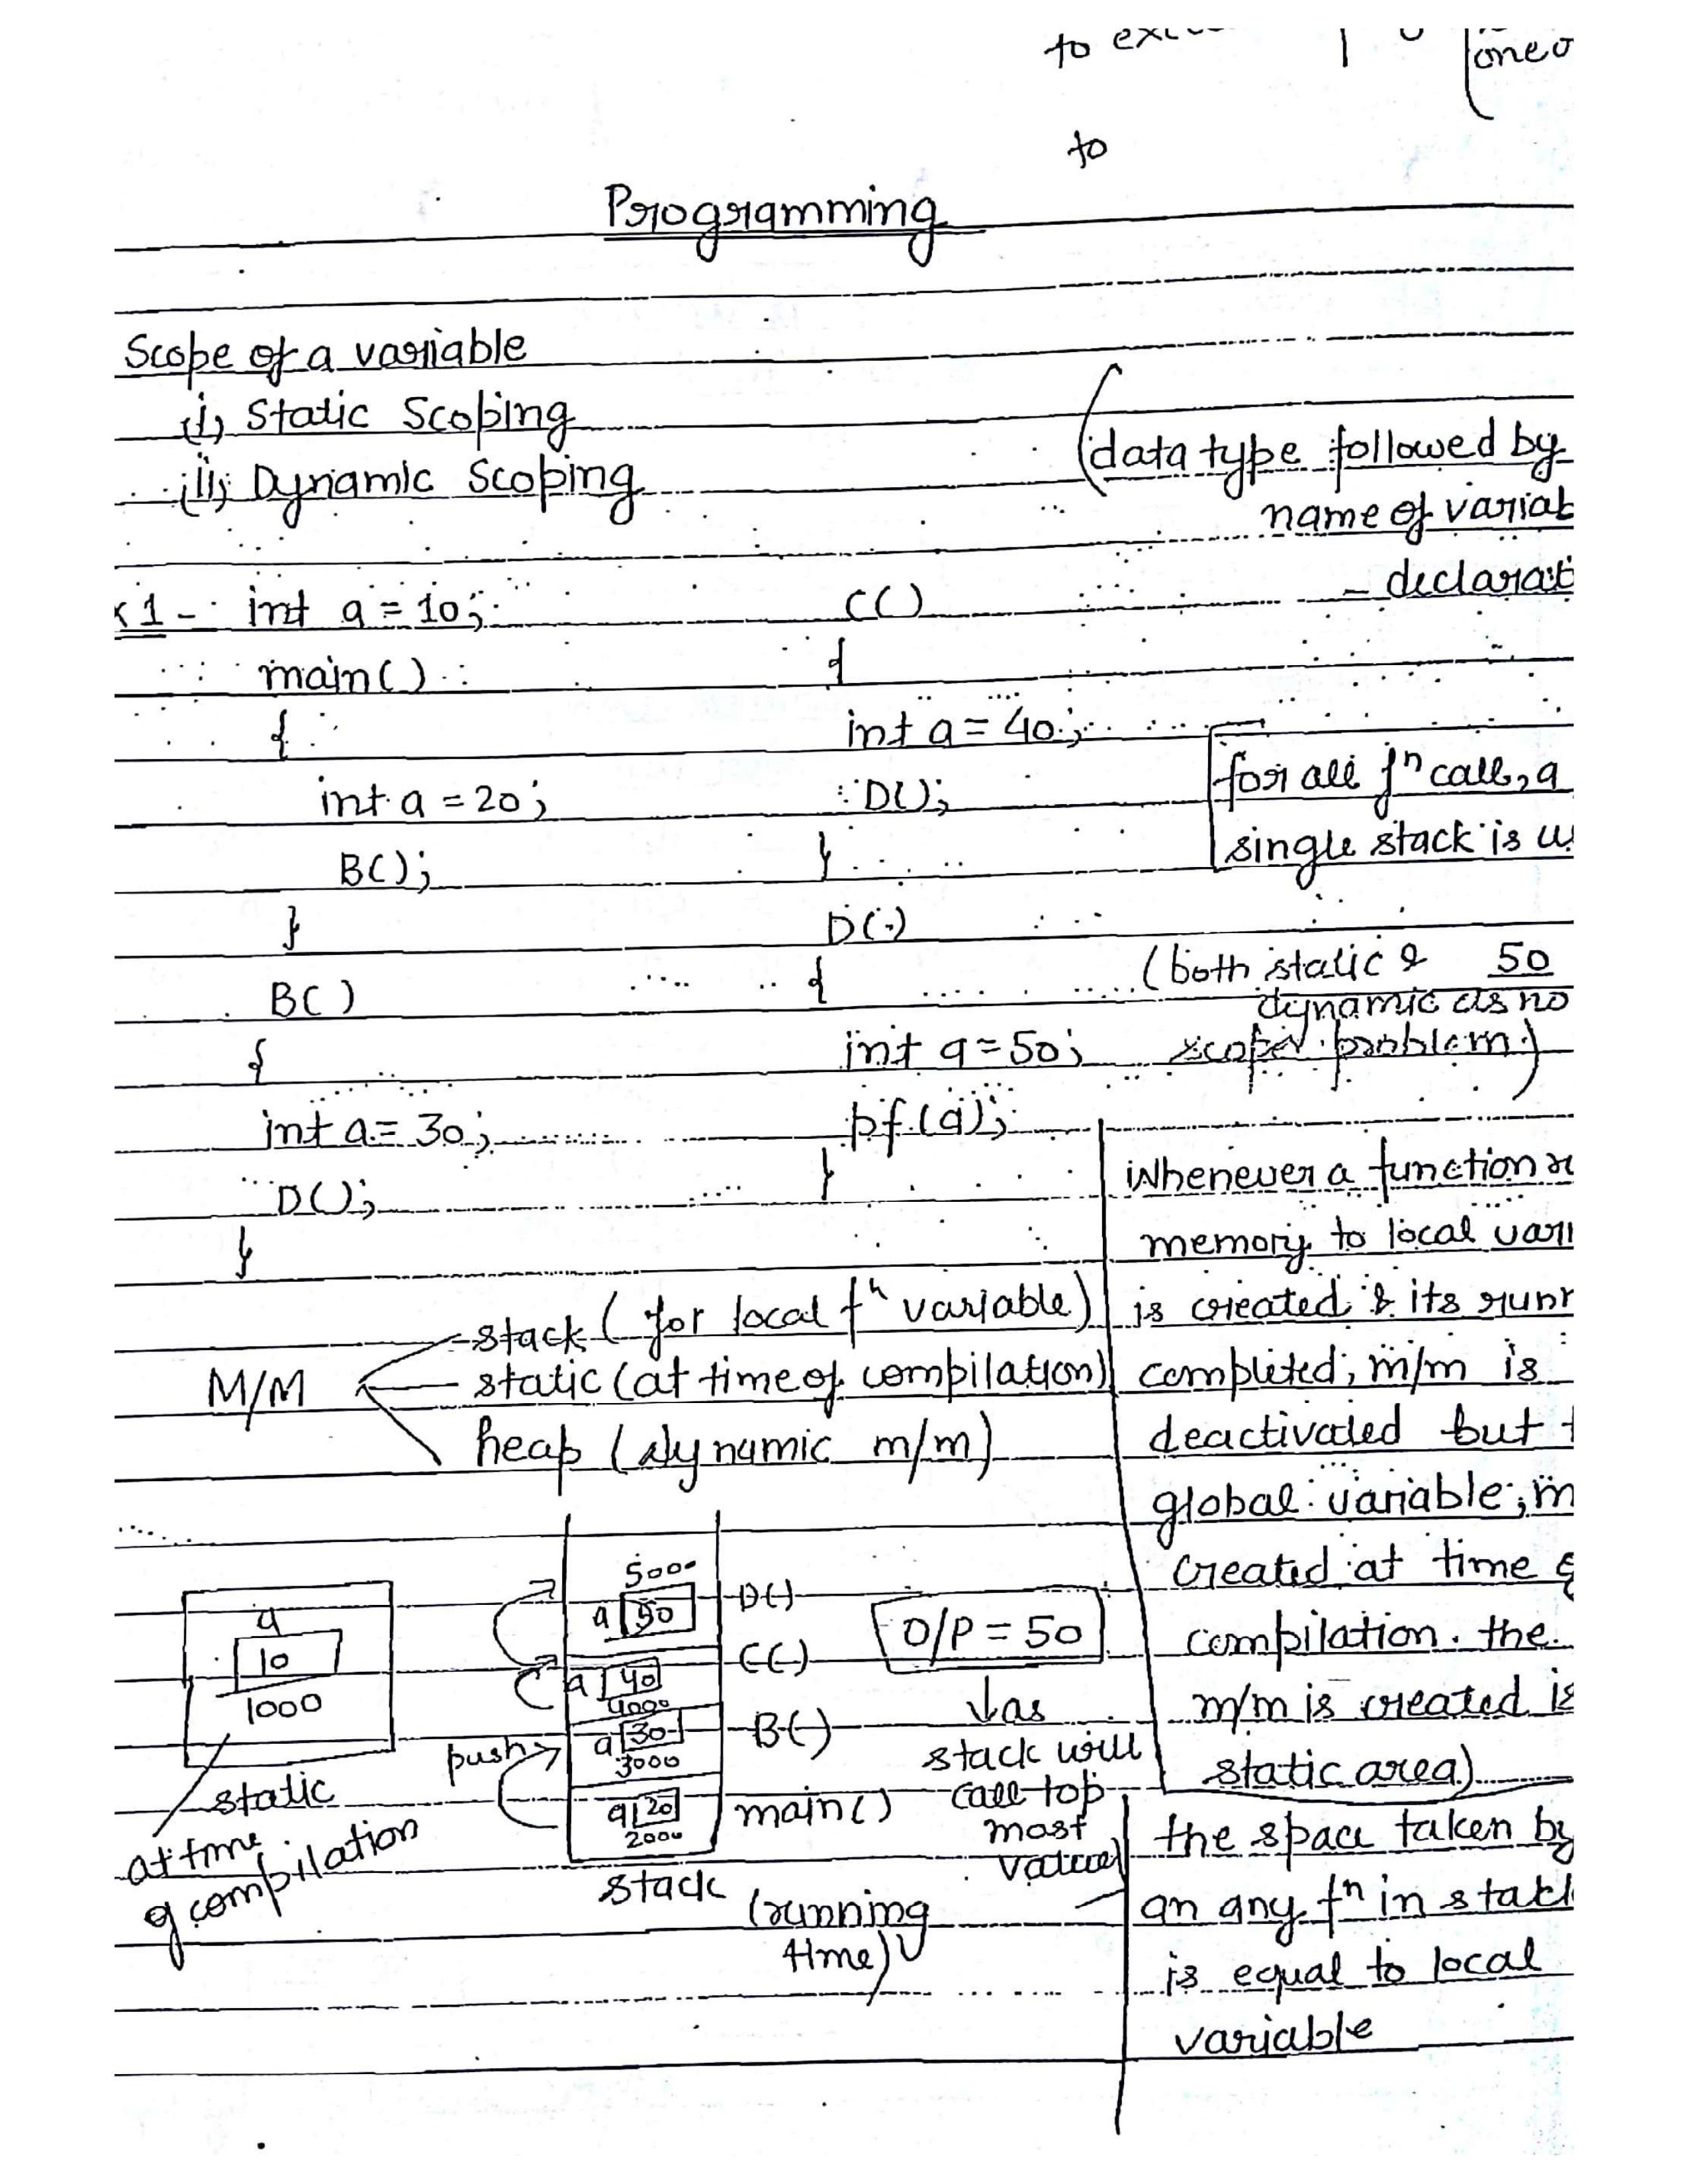 to
one
to
Programming
Scope of a variable
(i) Static Scoping
(ii) Dynamic Scoping
(data type followed by
name of variab
- declarat
x 1 - int a = 10;
main()
{
int a = 20;
B();
}
B()
{
int a = 30;
D();
}
C()
{
int a = 40;
D();
}
D()
{
int a = 50;
pf(a);
}
for all fn call, a
single stack is u
(both static & 50
dynamic as no
scope problem)
M/M
stack (for local fn variable)
static (at time of compilation)
heap (dynamic m/m)
Whenever a function r
memory to local vari
is created & its runn
completed; m/m is
deactivated but
global variable; m
created at time of
compilation. the
m/m is created is
static area)
a
10
1000
static
at time
of compilation
push
5000
a 50
D()
a 40
4000
C()
a 30
3000
B()
a 20
2000
main()
stack
(running
time)
O/P = 50
as
stack will
call top
most
value
the space taken by
an any fn in stack
is equal to local
variable